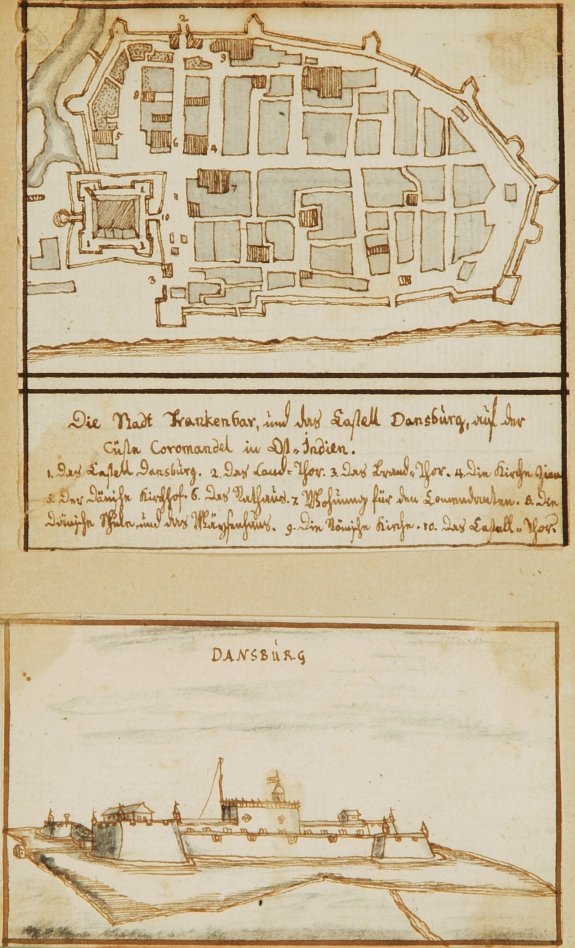 2
9
8
5
6
4
7
10
3
Die Stadt Trankenbar, und das Castell Dansbürg, auf der
Cüste Coromandel in Ost-Indien.
1. Das Castell Dansbürg. 2. Das Land-Thor. 3. Das Strand-Thor. 4. Die Kirche Zion
5. Der dänische Kirchhof. 6. Das Rathaus. 7. Wohnung für den Comendanten. 8. Die
dänische Schule und das Wäysenhaus. 9. Die Römische Kirche. 10. Das Castell-Thor.
DANSBÜRG